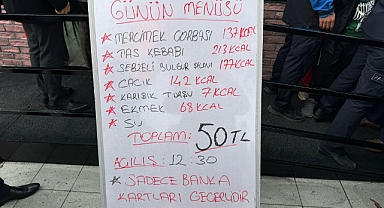 GÜNÜN MENÜSÜ
★ MERCİMEK ÇORBASI 137 KCAL
★ TAS KEBABI 213 KCAL
★ SEBZELİ BULGUR PİLAVI 177 KCAL
★ CACIK 142 KCAL
★ KARIŞIK TURŞU 7 KCAL
★ EKMEK 68 KCAL
★ SU
TOPLAM: 50 TL
AÇILIŞ: 12:30
★ SADECE BANKA
KARTLARI GEÇERLİDİR